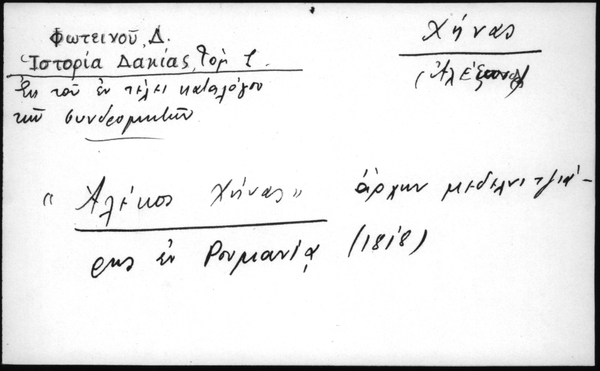 Φωτεινοῦ, Δ.
Ἱστορία Δακίας, Τόμ
Ἐκ τοῦ ἐν τέλει καταλόγου
τῶν συνδρομητῶν
Χήνας
(Ἀλέξανδρ)
"Ἀλέκος Χήνας" ἄρχων μεδελνιτζιά-
ρης ἐν Ρουμανίᾳ (1818)